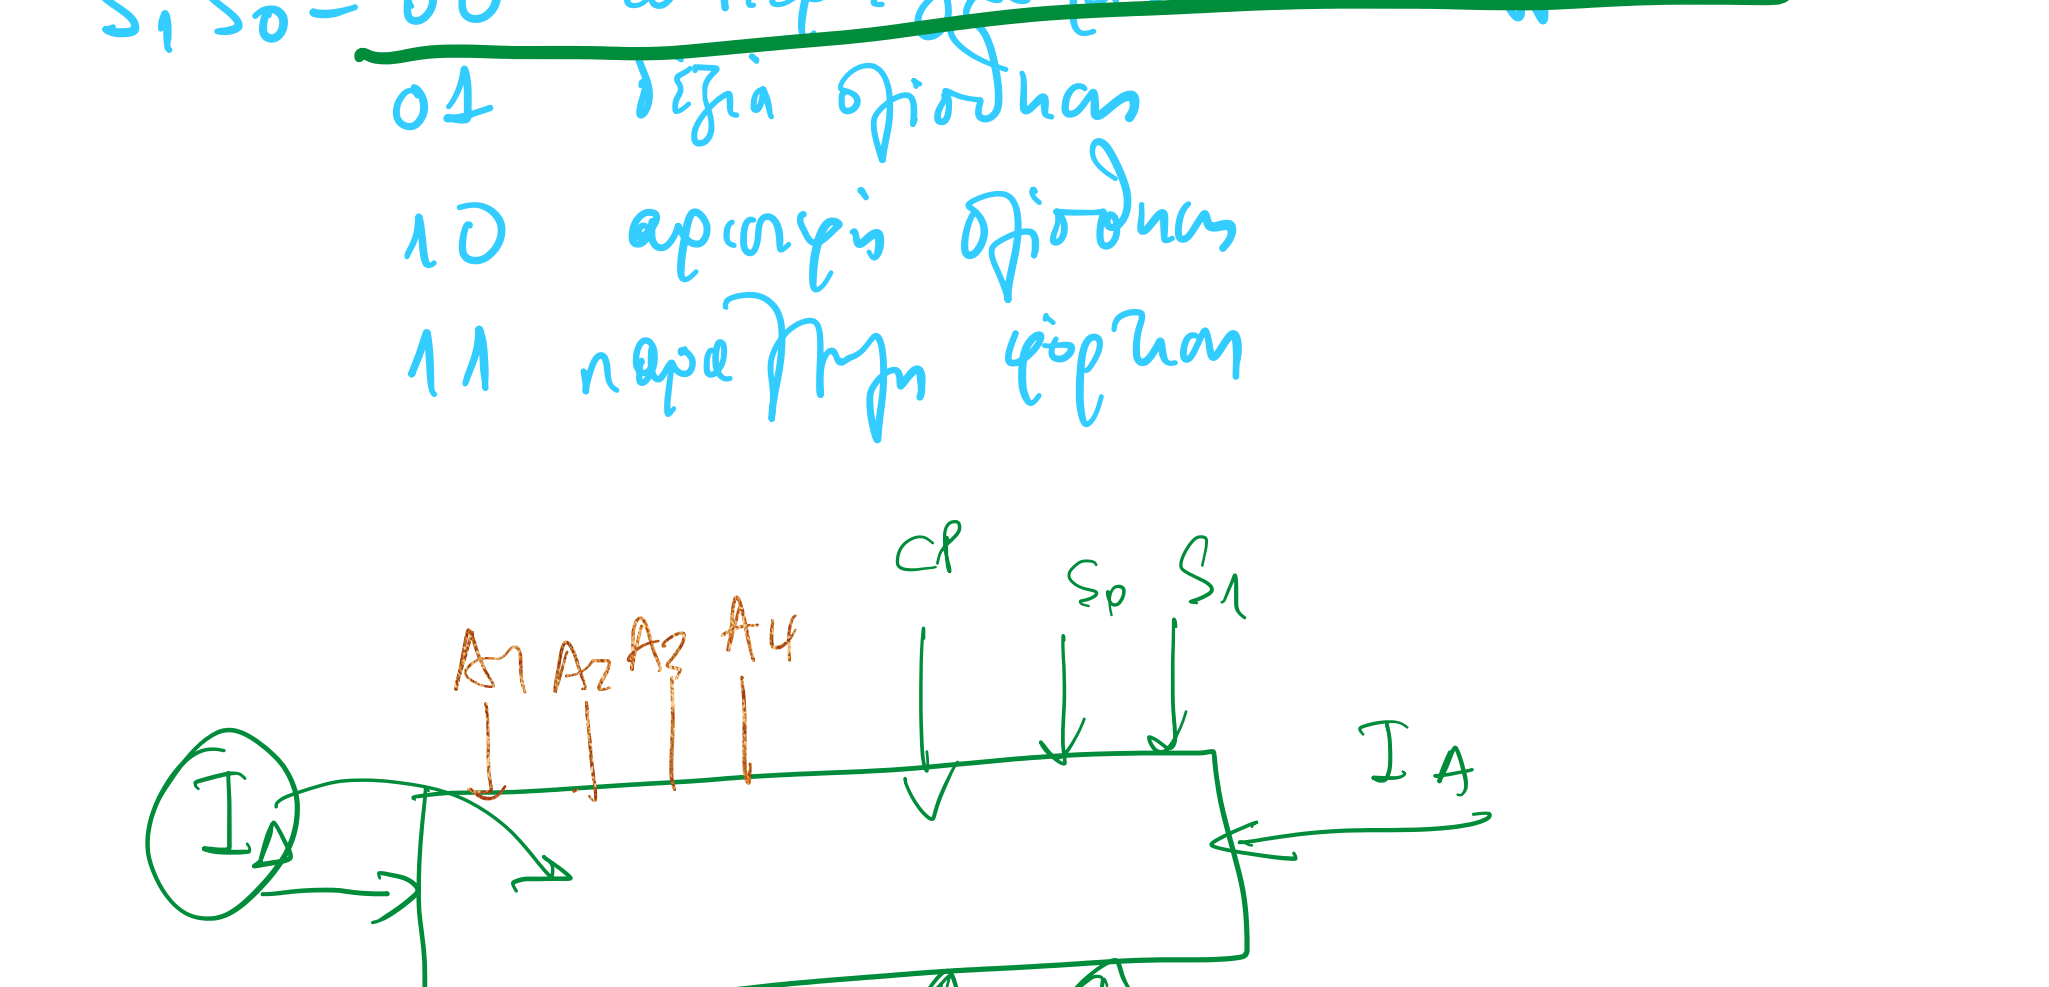 S1 S0 = 00
01 δεξιά ολίσθηση
10 αριστερή ολίσθηση
11 παράλληλη φόρτωση
CP
S0 S1
A1 A2 A3 A4
IΔ
IA